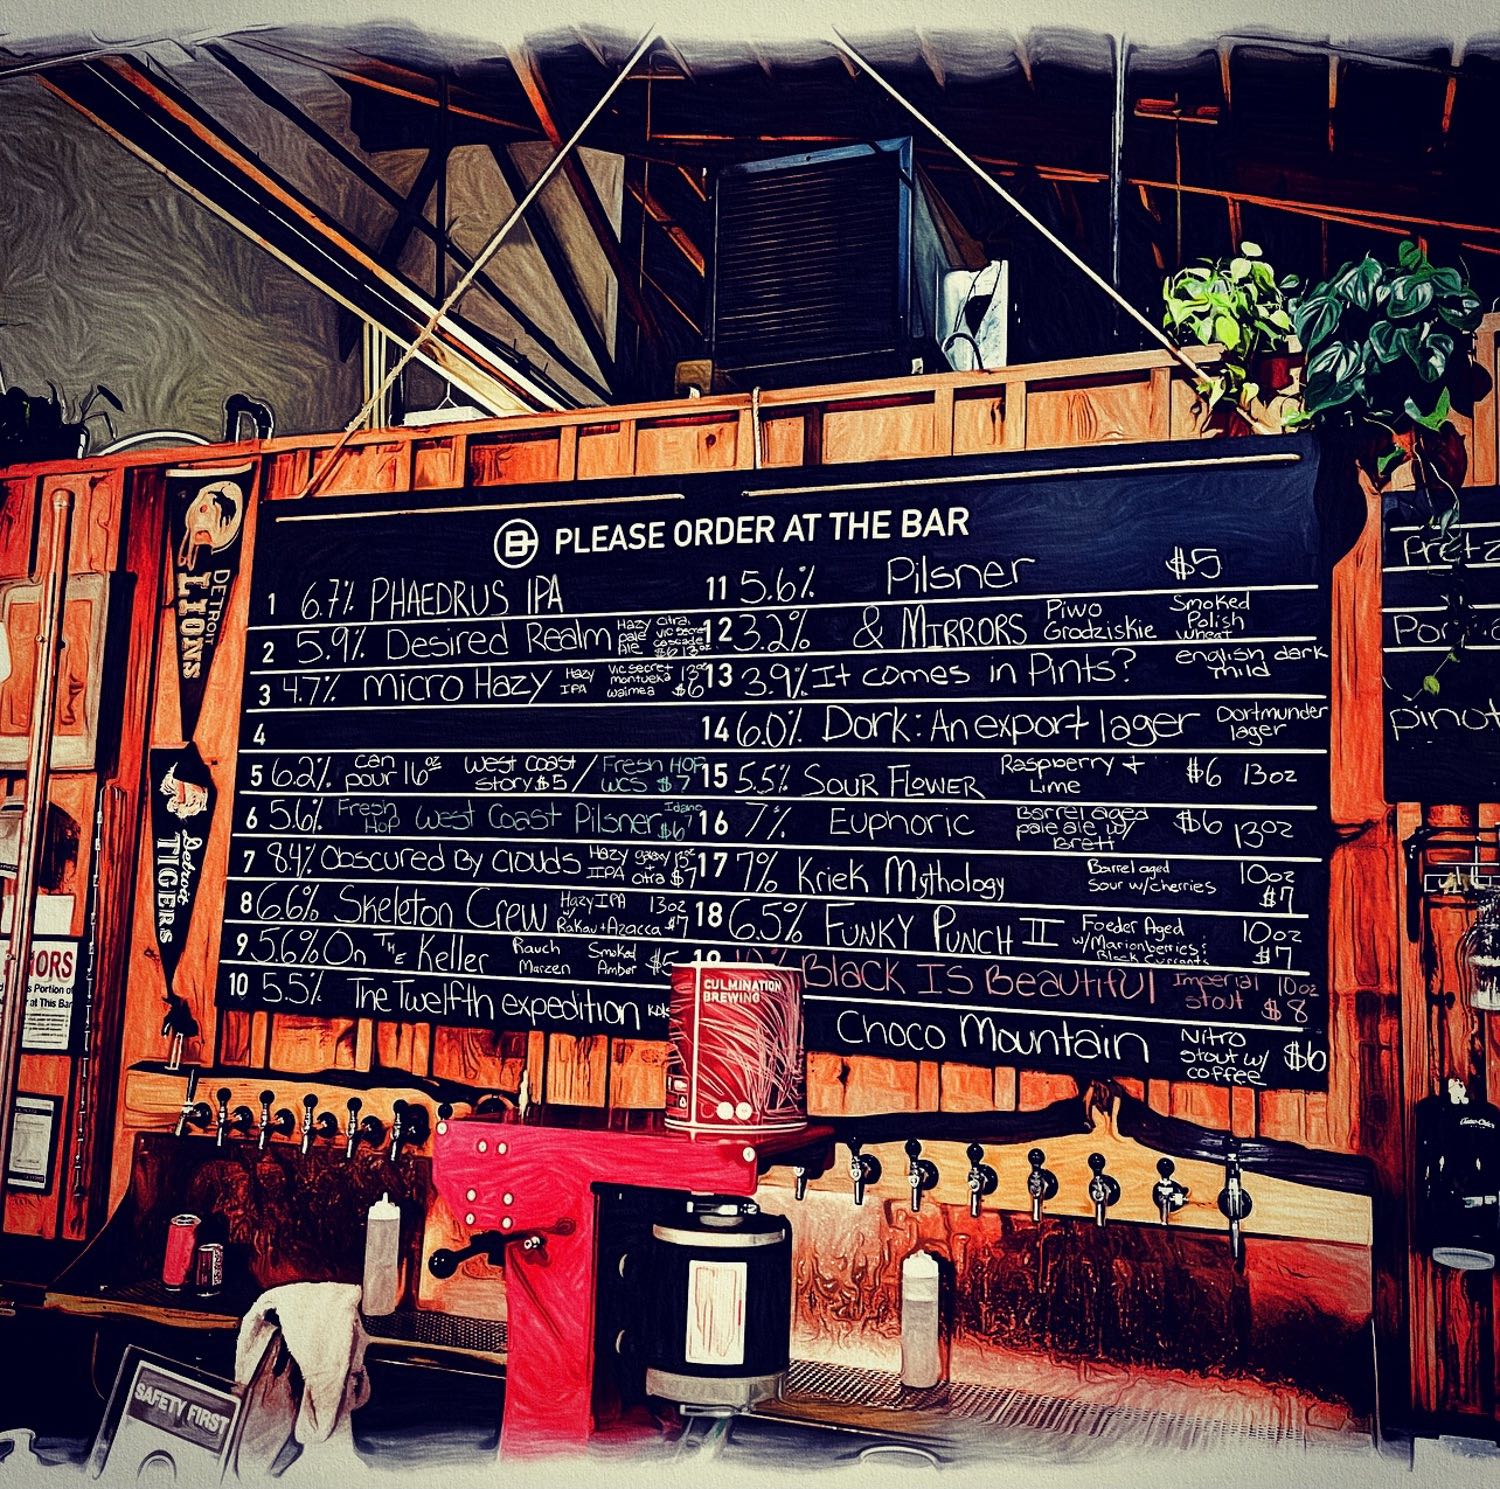 PLEASE ORDER AT THE BAR
1 6.7% PHAEDRUS IPA
2 5.9% Desired Realm Hazy pale ale citra vic secret cascade $6 13oz
3 4.7% Micro Hazy Hazy IPA vic secret montueka waimea 13oz $6
4
5 6.2% can pour 16oz West Coast Story $5 / Fresh Hop WCS $7
6 5.6% Fresh Hop West Coast Pilsner Idaho 7 $6
7 8.4% Obscured By Clouds Hazy IPA galaxy + citra 13oz $7
8 6.6% Skeleton Crew Hazy IPA w/ Rakau + Azacca 13oz $7
9 5.6% On The Keller Rauch Marzen Smoked Amber $5
10 5.5% The Twelfth expedition
11 5.6% Pilsner $5
12 3.2% & MIRRORS Piwo Grodziskie Smoked Polish wheat
13 3.9% It comes in Pints? english dark mild
14 6.0% Dork: An export lager Dortmunder lager
15 5.5% SOUR FLOWER Raspberry + Lime $6 13oz
16 7% Euphoric Barrel aged pale ale w/ Brett $6 13oz
17 7% Kriek Mythology Barrel aged sour w/cherries 10oz $7
18 6.5% FUNKY PUNCH II Foeder Aged w/Marionberries: Black Currants 10oz $7
19 10% Black Is Beautiful Imperial stout 10oz $8
Choco Mountain Nitro stout w/ coffee $6
DETROIT LIONS
Detroit TIGERS
CULMINATION
BREWING
SAFETY FIRST
at This Bar